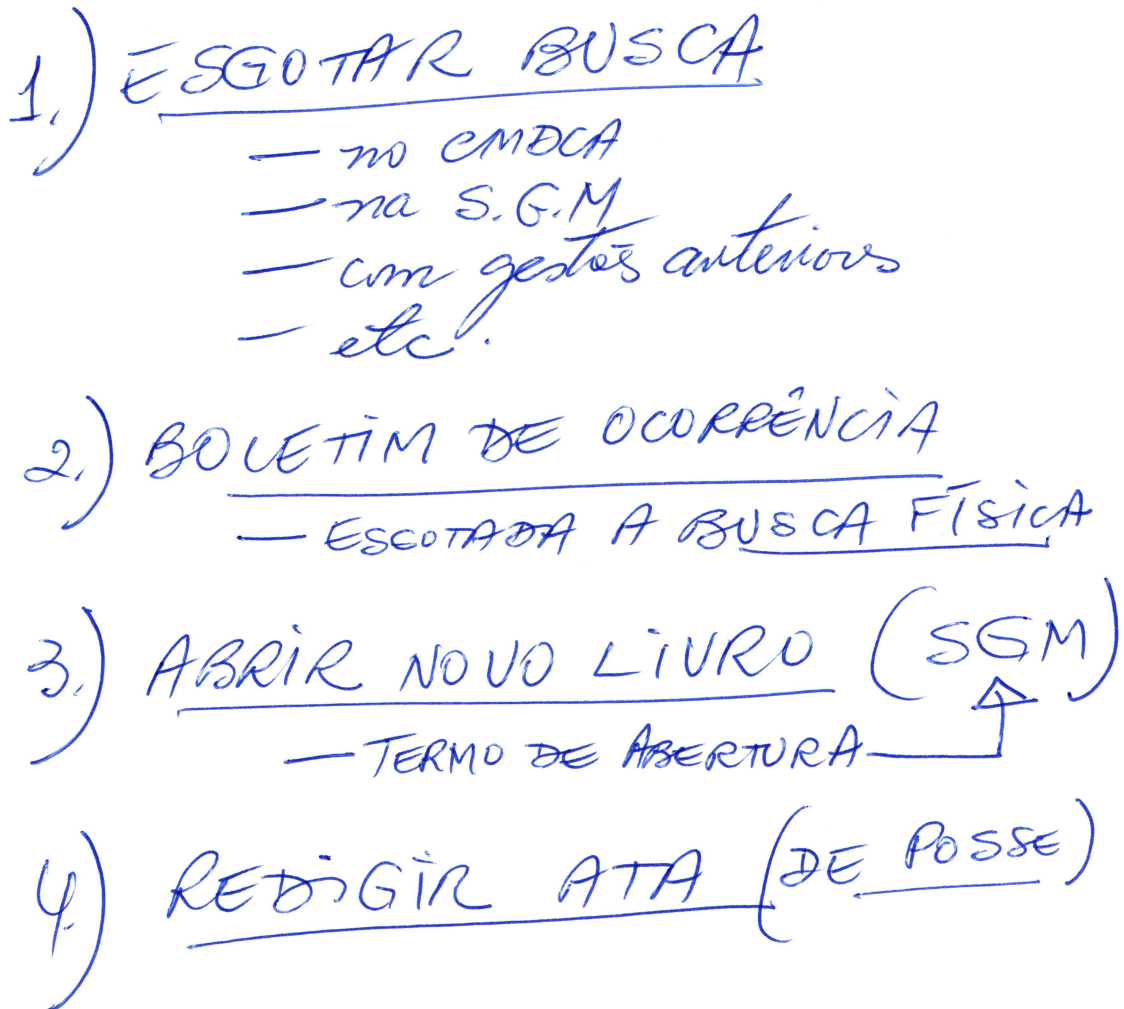 1.) ESGOTAR BUSCA
— no CMDCA
— na S.G.M
— com gestões anteriores
— etc.
2.) BOLETIM DE OCORRÊNCIA
— ESGOTADA A BUSCA FÍSICA
3.) ABRIR NOVO LIVRO (SGM)
— TERMO DE ABERTURA
4.) REDIGIR ATA (DE POSSE)